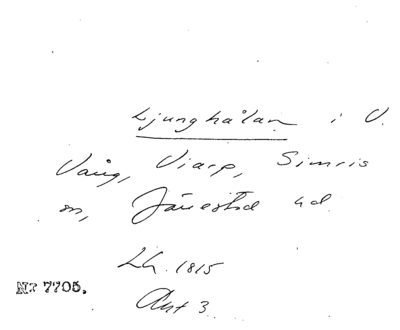 Ljunghålan i V.
Vång, Viarp, Simris
sn, Järrestad hd
LG. 1815
Akt 3.
NT 7705.